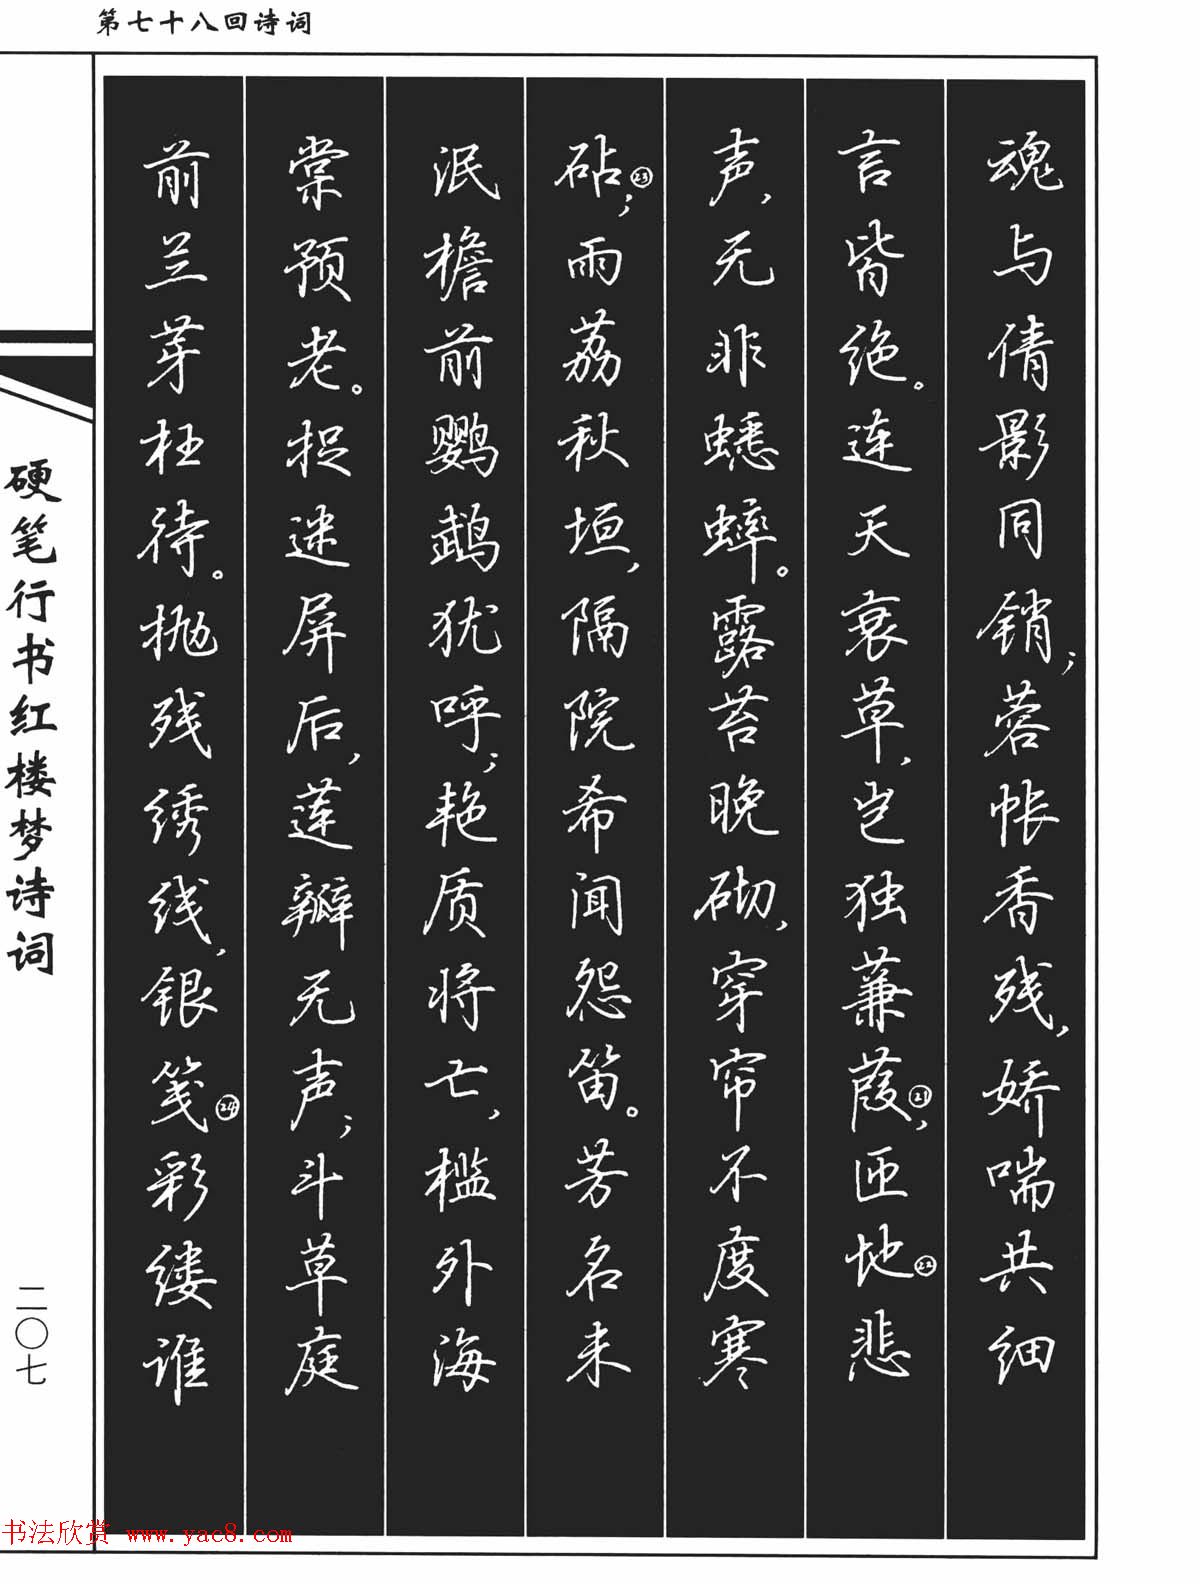 第七十八回诗词
魂与倩影同销；蓉帐香残，娇喘共细
言皆绝。连天衰草，岂独蒹葭㉑，匝地㉒悲
声，无非蟋蟀。露苔晚砌，穿帘不度寒
砧㉓；雨荔秋垣，隔院希闻怨笛。芳名未
泯檐前鹦鹉犹呼；艳质将亡，槛外海
棠预老。捉迷屏后，莲瓣无声；斗草庭
前兰芽枉待。抛残绣线，银笺㉔彩缕谁
硬笔行书红楼梦诗词
二〇七
书法欣赏 www.yac8.com